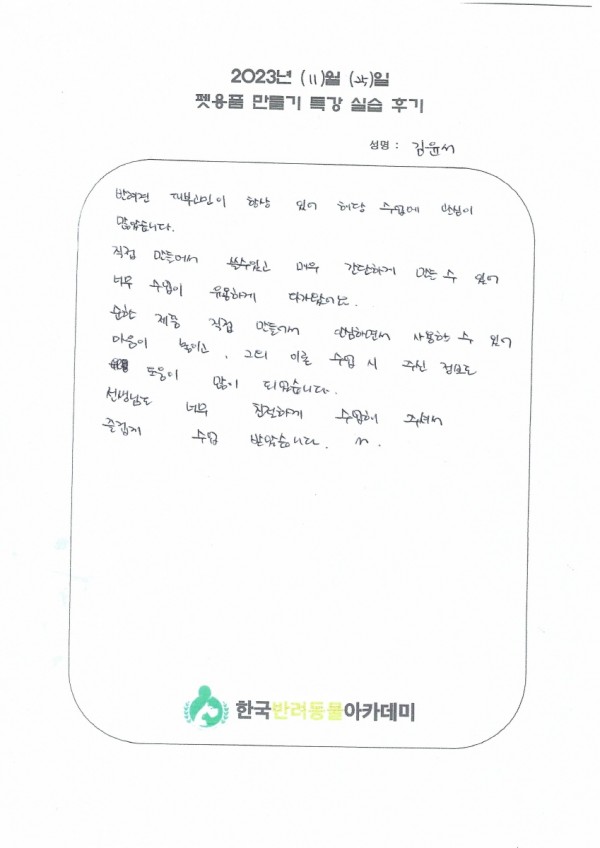 2023년 (11)월 (25)일
펫용품 만들기 특강 실습 후기
성명 : 김윤서
반려견 피부고민이 항상 있어 해당 수업에 관심이
많았습니다.
직접 만들어서 쓸수있고 매우 간단하게 만들 수 있어
너무 수업이 유용하게 다가왔어요.
순한 제품 직접 만들어서 안심하면서 사용할 수 있어
마음이 놓이고, 그외 이론 수업 시 주신 정보도
도움이 많이 되었습니다.
선생님도 너무 친절하게 수업해 주셔서
즐겁게 수업 받았습니다. ^^.
한국반려동물아카데미